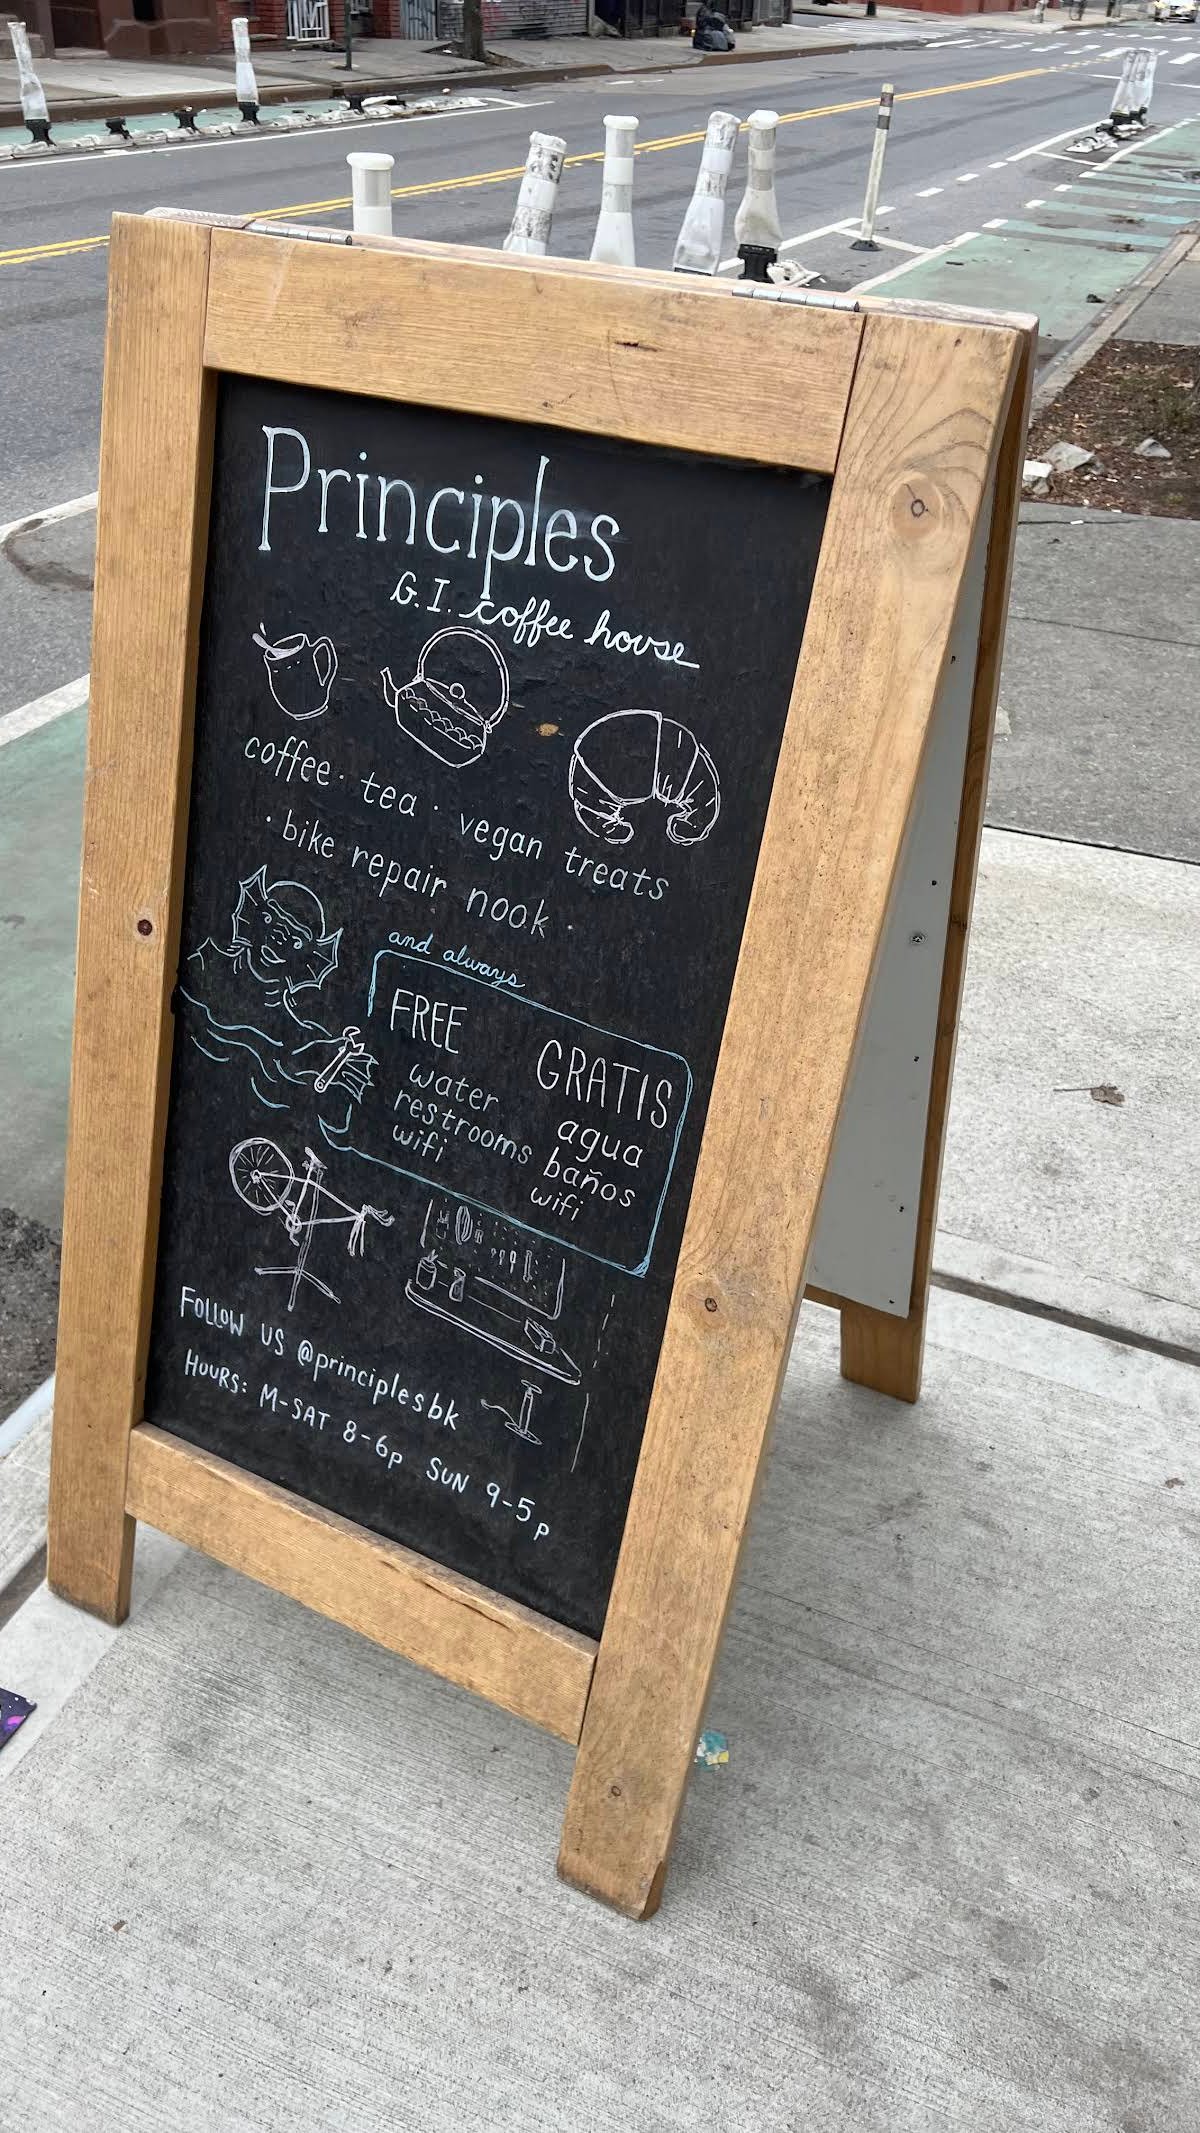 Principles
G.I. coffee house
coffee · tea · vegan treats
· bike repair nook ·
and always
FREE
water
restrooms
wifi
GRATIS
agua
baños
wifi
FOLLOW US @principlesbk
HOURS: M-SAT 8-6p SUN 9-5p